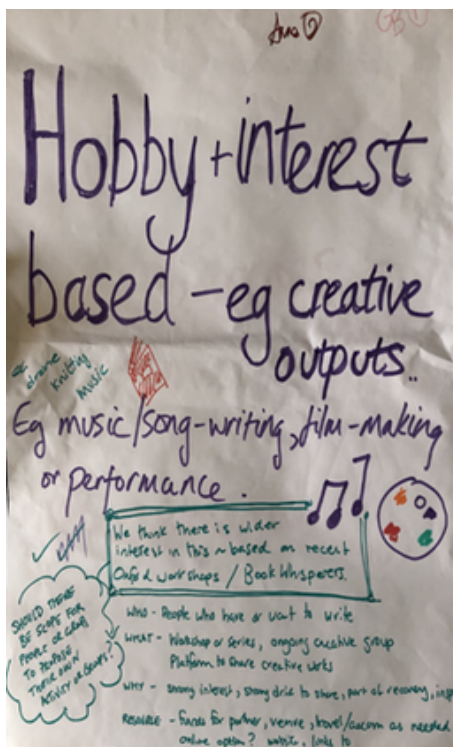 Hobby + interest
based - eg creative
outputs..
knitting
music
Eg music/song-writing, film-making
or performance.
We think there is wider
interest in this ~ based on recent
workshops / Book Whisperers.
SHOULD THERE
BE SCOPE FOR
PEOPLE OR GROUPS
TO PROPOSE
THEIR OWN
ACTIVITY OR GROUPS?
WHO - People who have or want to write
WHAT - Workshop or series, ongoing creative group
Platform to share creative works
WHY - strong interest, strong drive to share, part of recovery,
RESOURCE - Funds for partner, venue, travel/accom as needed
online option? website, links to